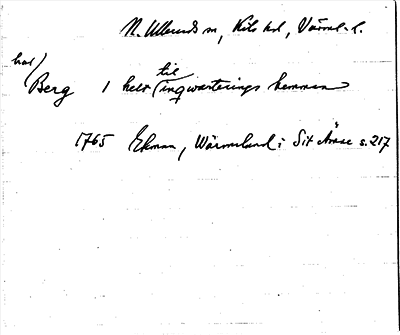 N. Ullerud sn, Kils hd, Värml. l.
har/
Berg 1 helt (til) inqvarterings hemman
1765 Ekman, Wärmeland i Sit Ämne s. 217